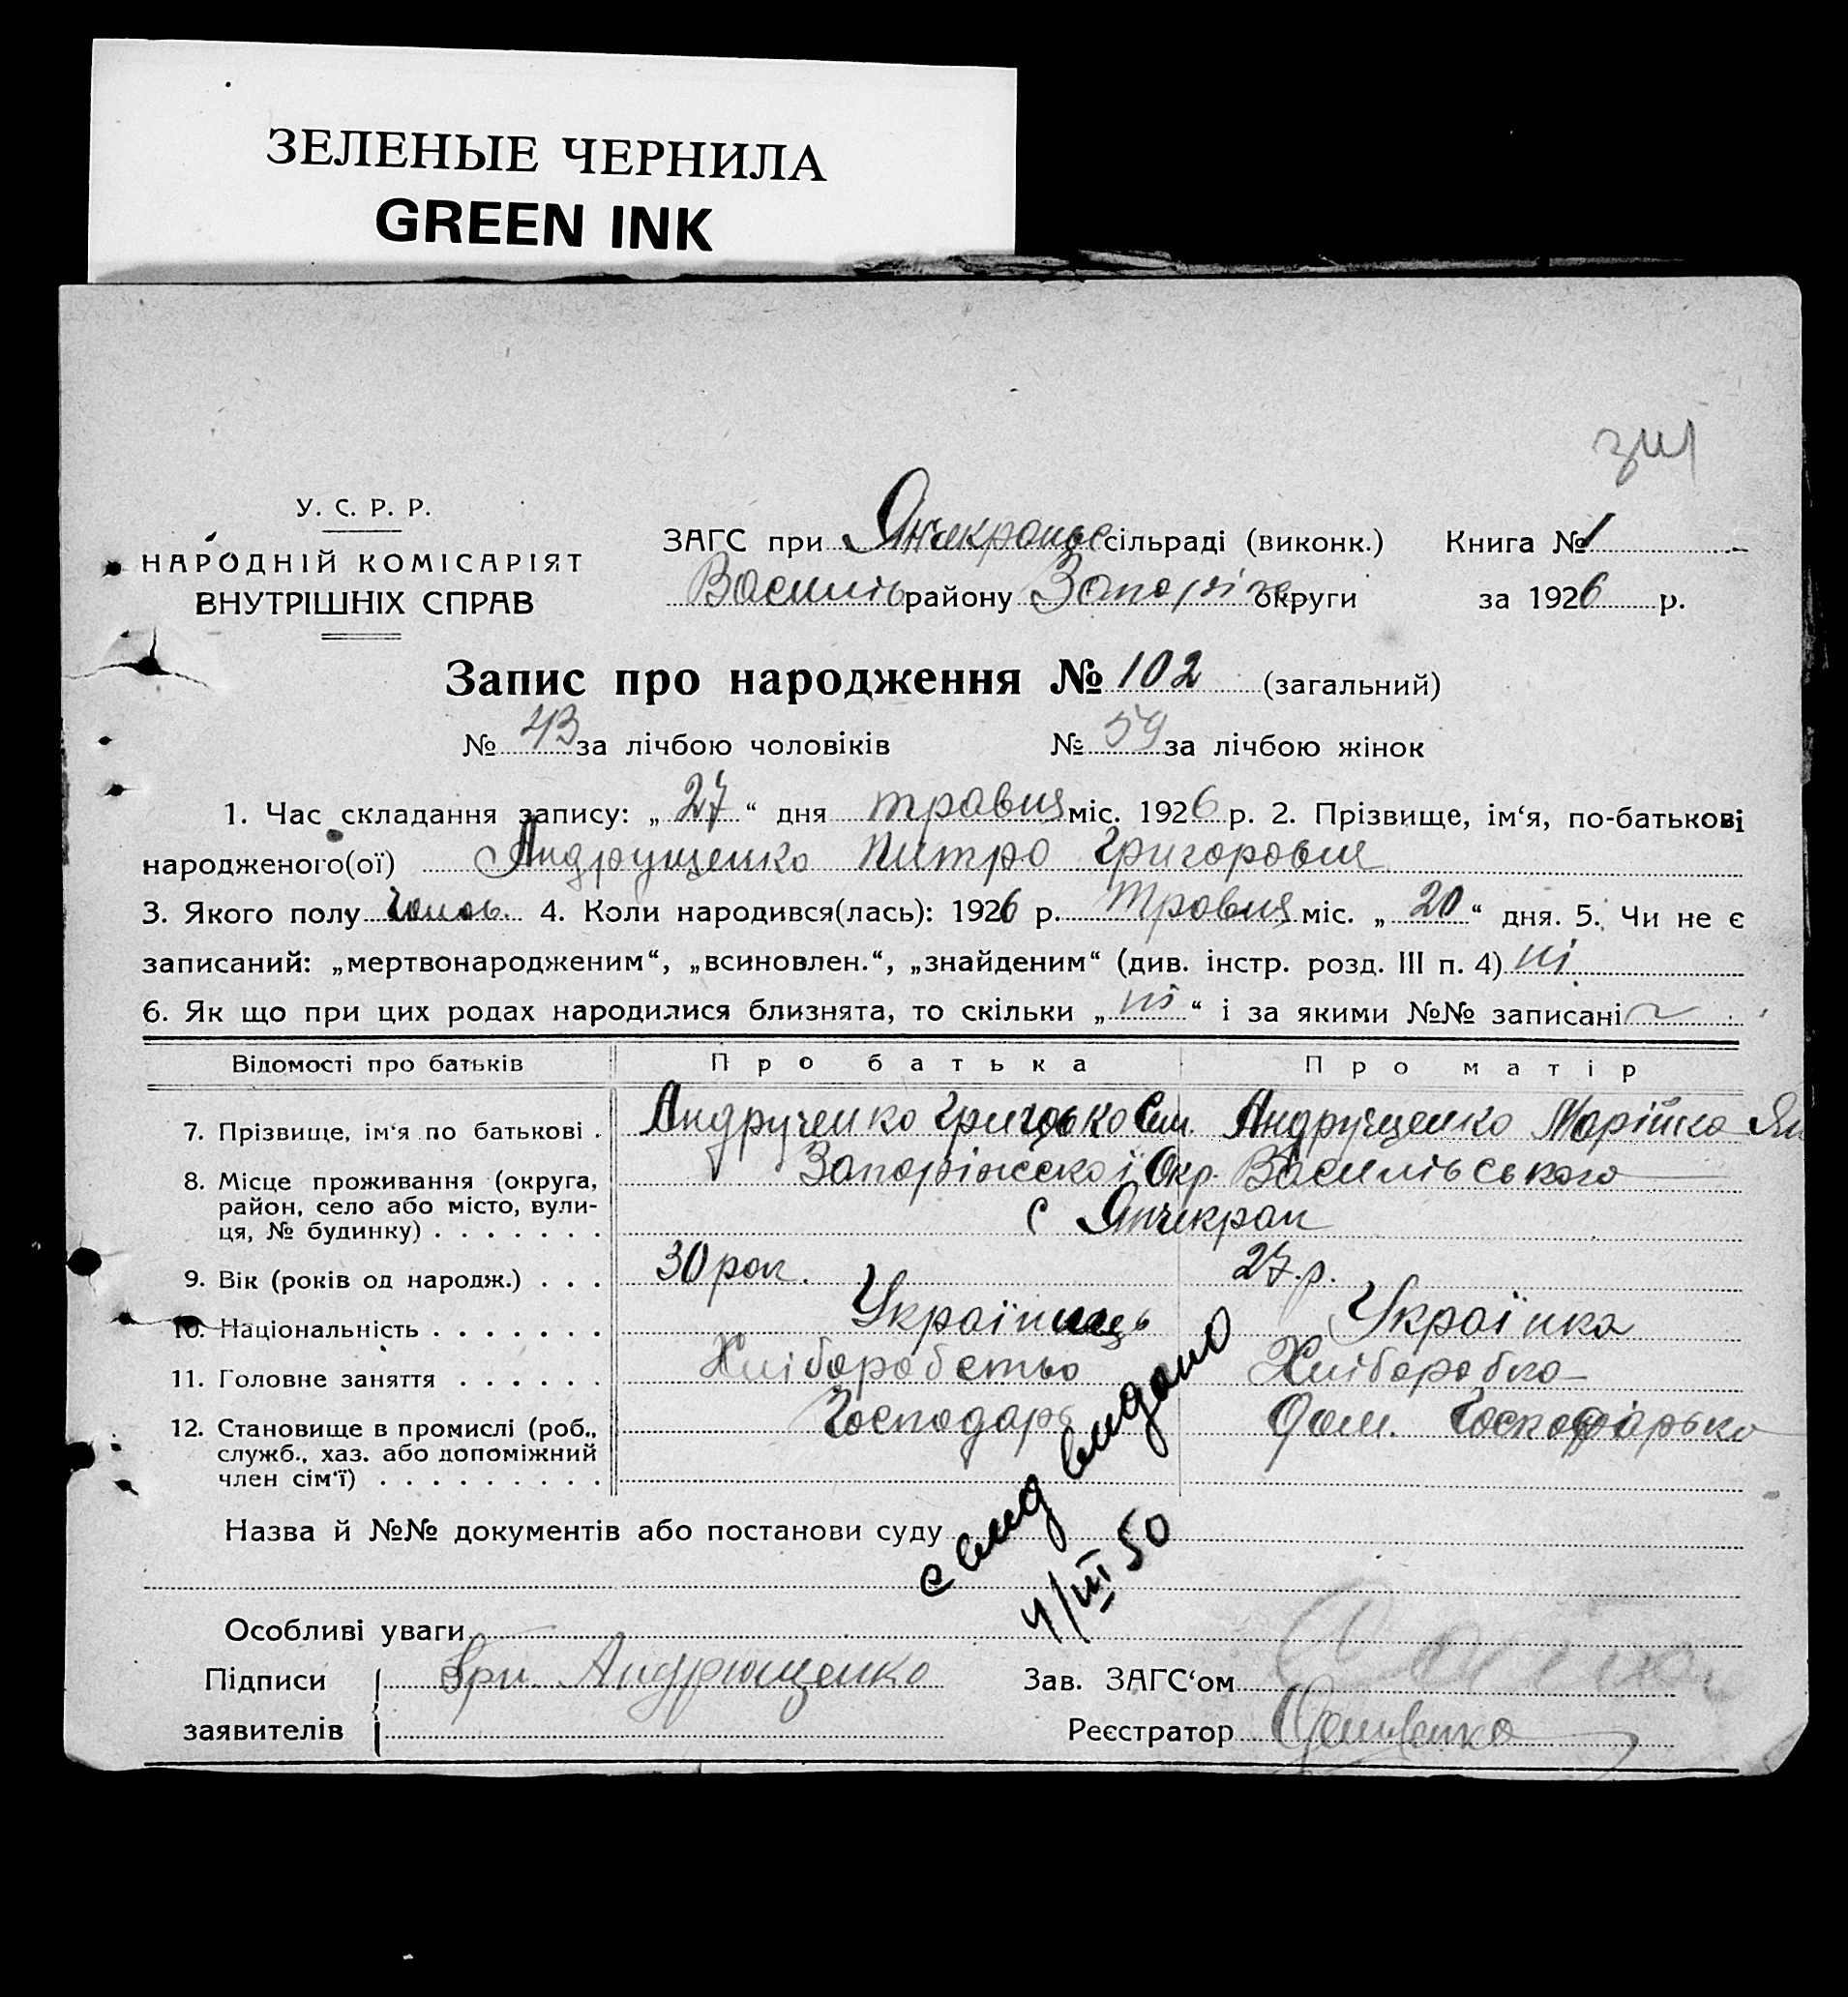 ЗЕЛЕНЫЕ ЧЕРНИЛА
GREEN INK
У. С. Р. Р.
НАРОДНІЙ КОМІСАРІЯТ
ВНУТРІШНІХ СПРАВ
ЗАГС при Янчекрацьк сільраді (виконк.) Книга № 1
Василів району Запоріж округи за 1926 р.
Запис про народження № 102 (загальний)
№ 43 за лічбою чоловіків № 59 за лічбою жінок
1. Час складання запису: „ 27 “ дня травня міс. 1926 р. 2. Прізвище, ім‘я, по-батькові
народженого(ої) Андрущенко Питро Григорович
3. Якого полу чолов. 4. Коли народився(лась): 1926 р. Травня міс. „ 20 “ дня. 5. Чи не є
записаний: „мертвонародженим“, „всиновлен.“, „знайденим“ (див. інстр. розд. III п. 4) ні
6. Як що при цих родах народилися близнята, то скільки „ ні “ і за якими №№ записані
Відомості про батьків Про батька Про матір
7. Прізвище, ім‘я по батькові . Андрученко Григорько Сем. Андрущенко Марійка
8. Місце проживання (округа, Запоріжської Окр. Василівського
район, село або місто, вули- с Янчекрак
ця, № будинку) . . . . . . .
9. Вік (років од народж.) . . . 30 рок. 27.р.
10. Національність . . . . . . . Українець Українка
11. Головне заняття . . . . . . Хліборобство Хліборобка
12. Становище в промислі (роб., Господарь Дом. Господарька
служб., хаз. або допоміжний
член сім‘ї) . . . . . . . . .
Назва й №№ документів або постанови суду
с вид видано
4/III 50
Особливі уваги
Підписи Гри. Андрющенко Зав. ЗАГС‘ом
заявителів Реєстратор